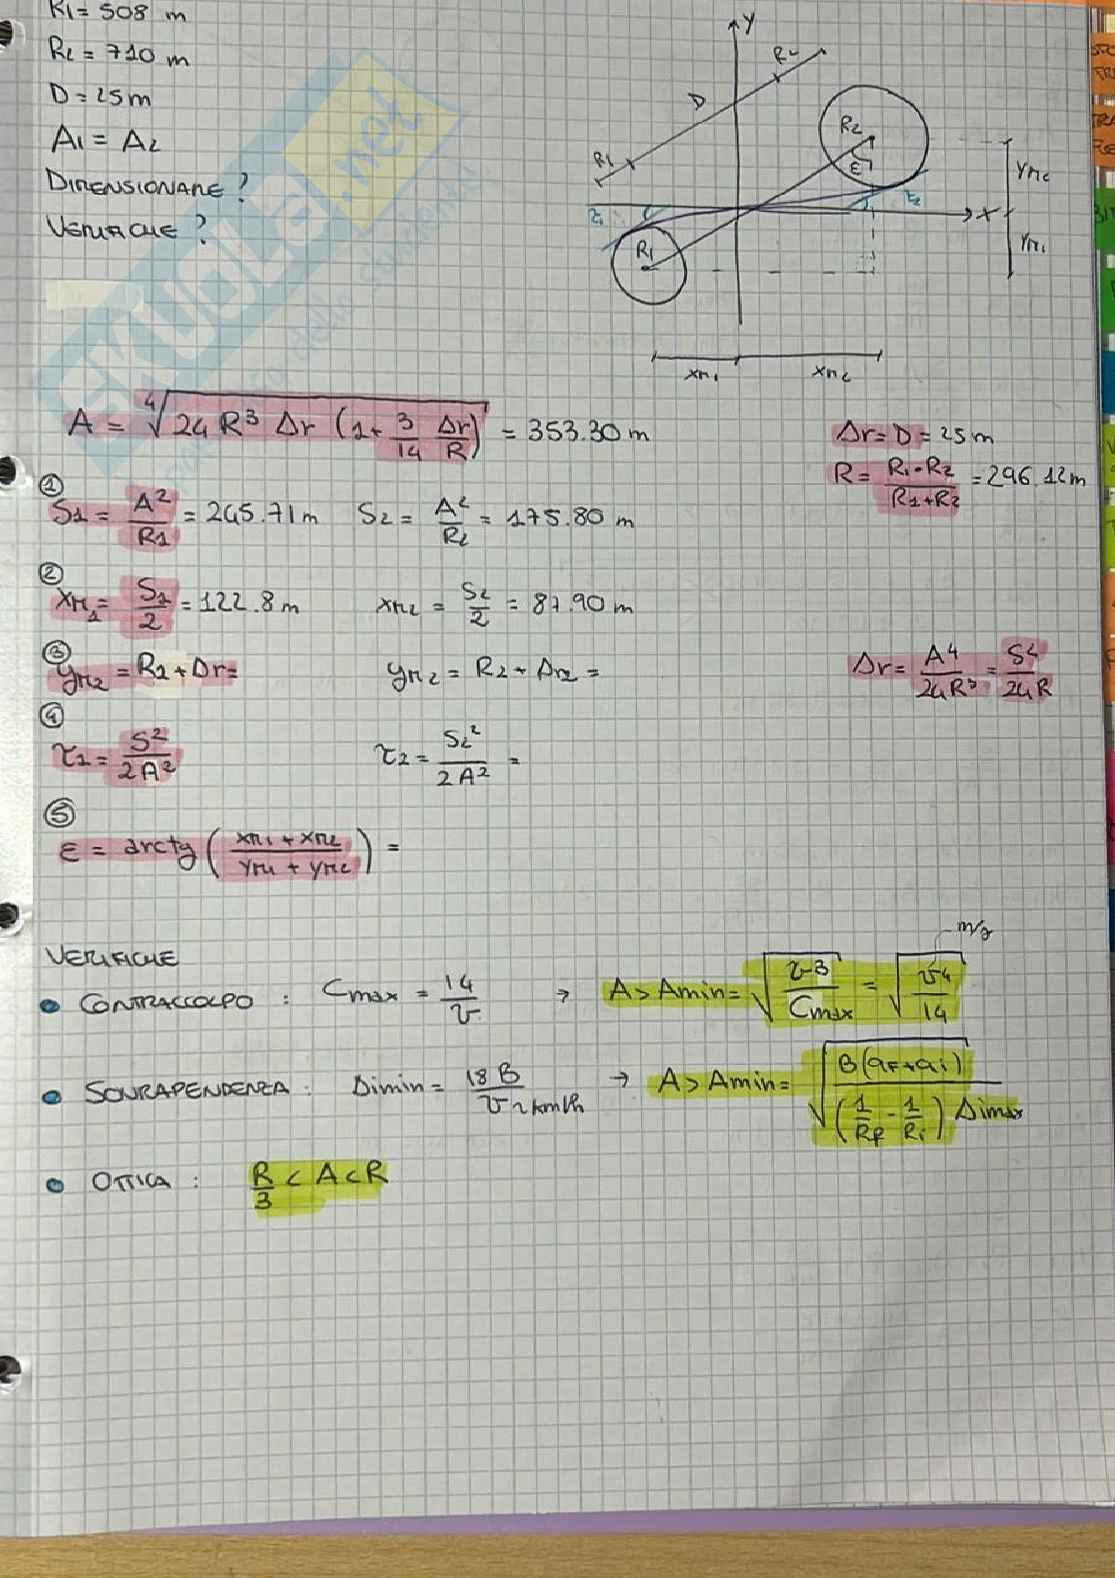 R1 = 508 m
R2 = 710 m
D = 25m
A1 = A2
DIMENSIONARE?
VERIFICHE?
Y
R2
D
R1
R2
ε
τ2
x
YM2
τ1
R1
YM1
xM1
xM2
SKUOLA.net
A = ⁴√(24 R³ Δr (1+ 3/14 Δr/R)) = 353.30 m
Δr = D = 25 m
R = R1·R2 / R1+R2 = 296.12m
①
S1 = A²/R1 = 245.71 m S2 = A²/R2 = 175.80 m
②
xM1 = S1/2 = 122.8 m xM2 = S2/2 = 87.90 m
③
yM2 = R2 + Δr = yM2 = R2 + Δr2 =
Δr = A⁴/24R³ = S²/24R
④
τ1 = S²/2A² τ2 = S2²/2A² =
⑤
ε = arctg (xM1 + xM2 / YM1 + YM2) =
VERIFICHE
m/s
• CONTRACCOLPO : Cmax = 14/v → A > Amin = √(v3/Cmax) = √(v⁴/14)
• SOVRAPENDENZA : Δimin = 18 B / v km/h → A > Amin = √(B(qf+qi) / (1/Rf - 1/Ri) Δimax)
• OTTICA : R/3 < A < R